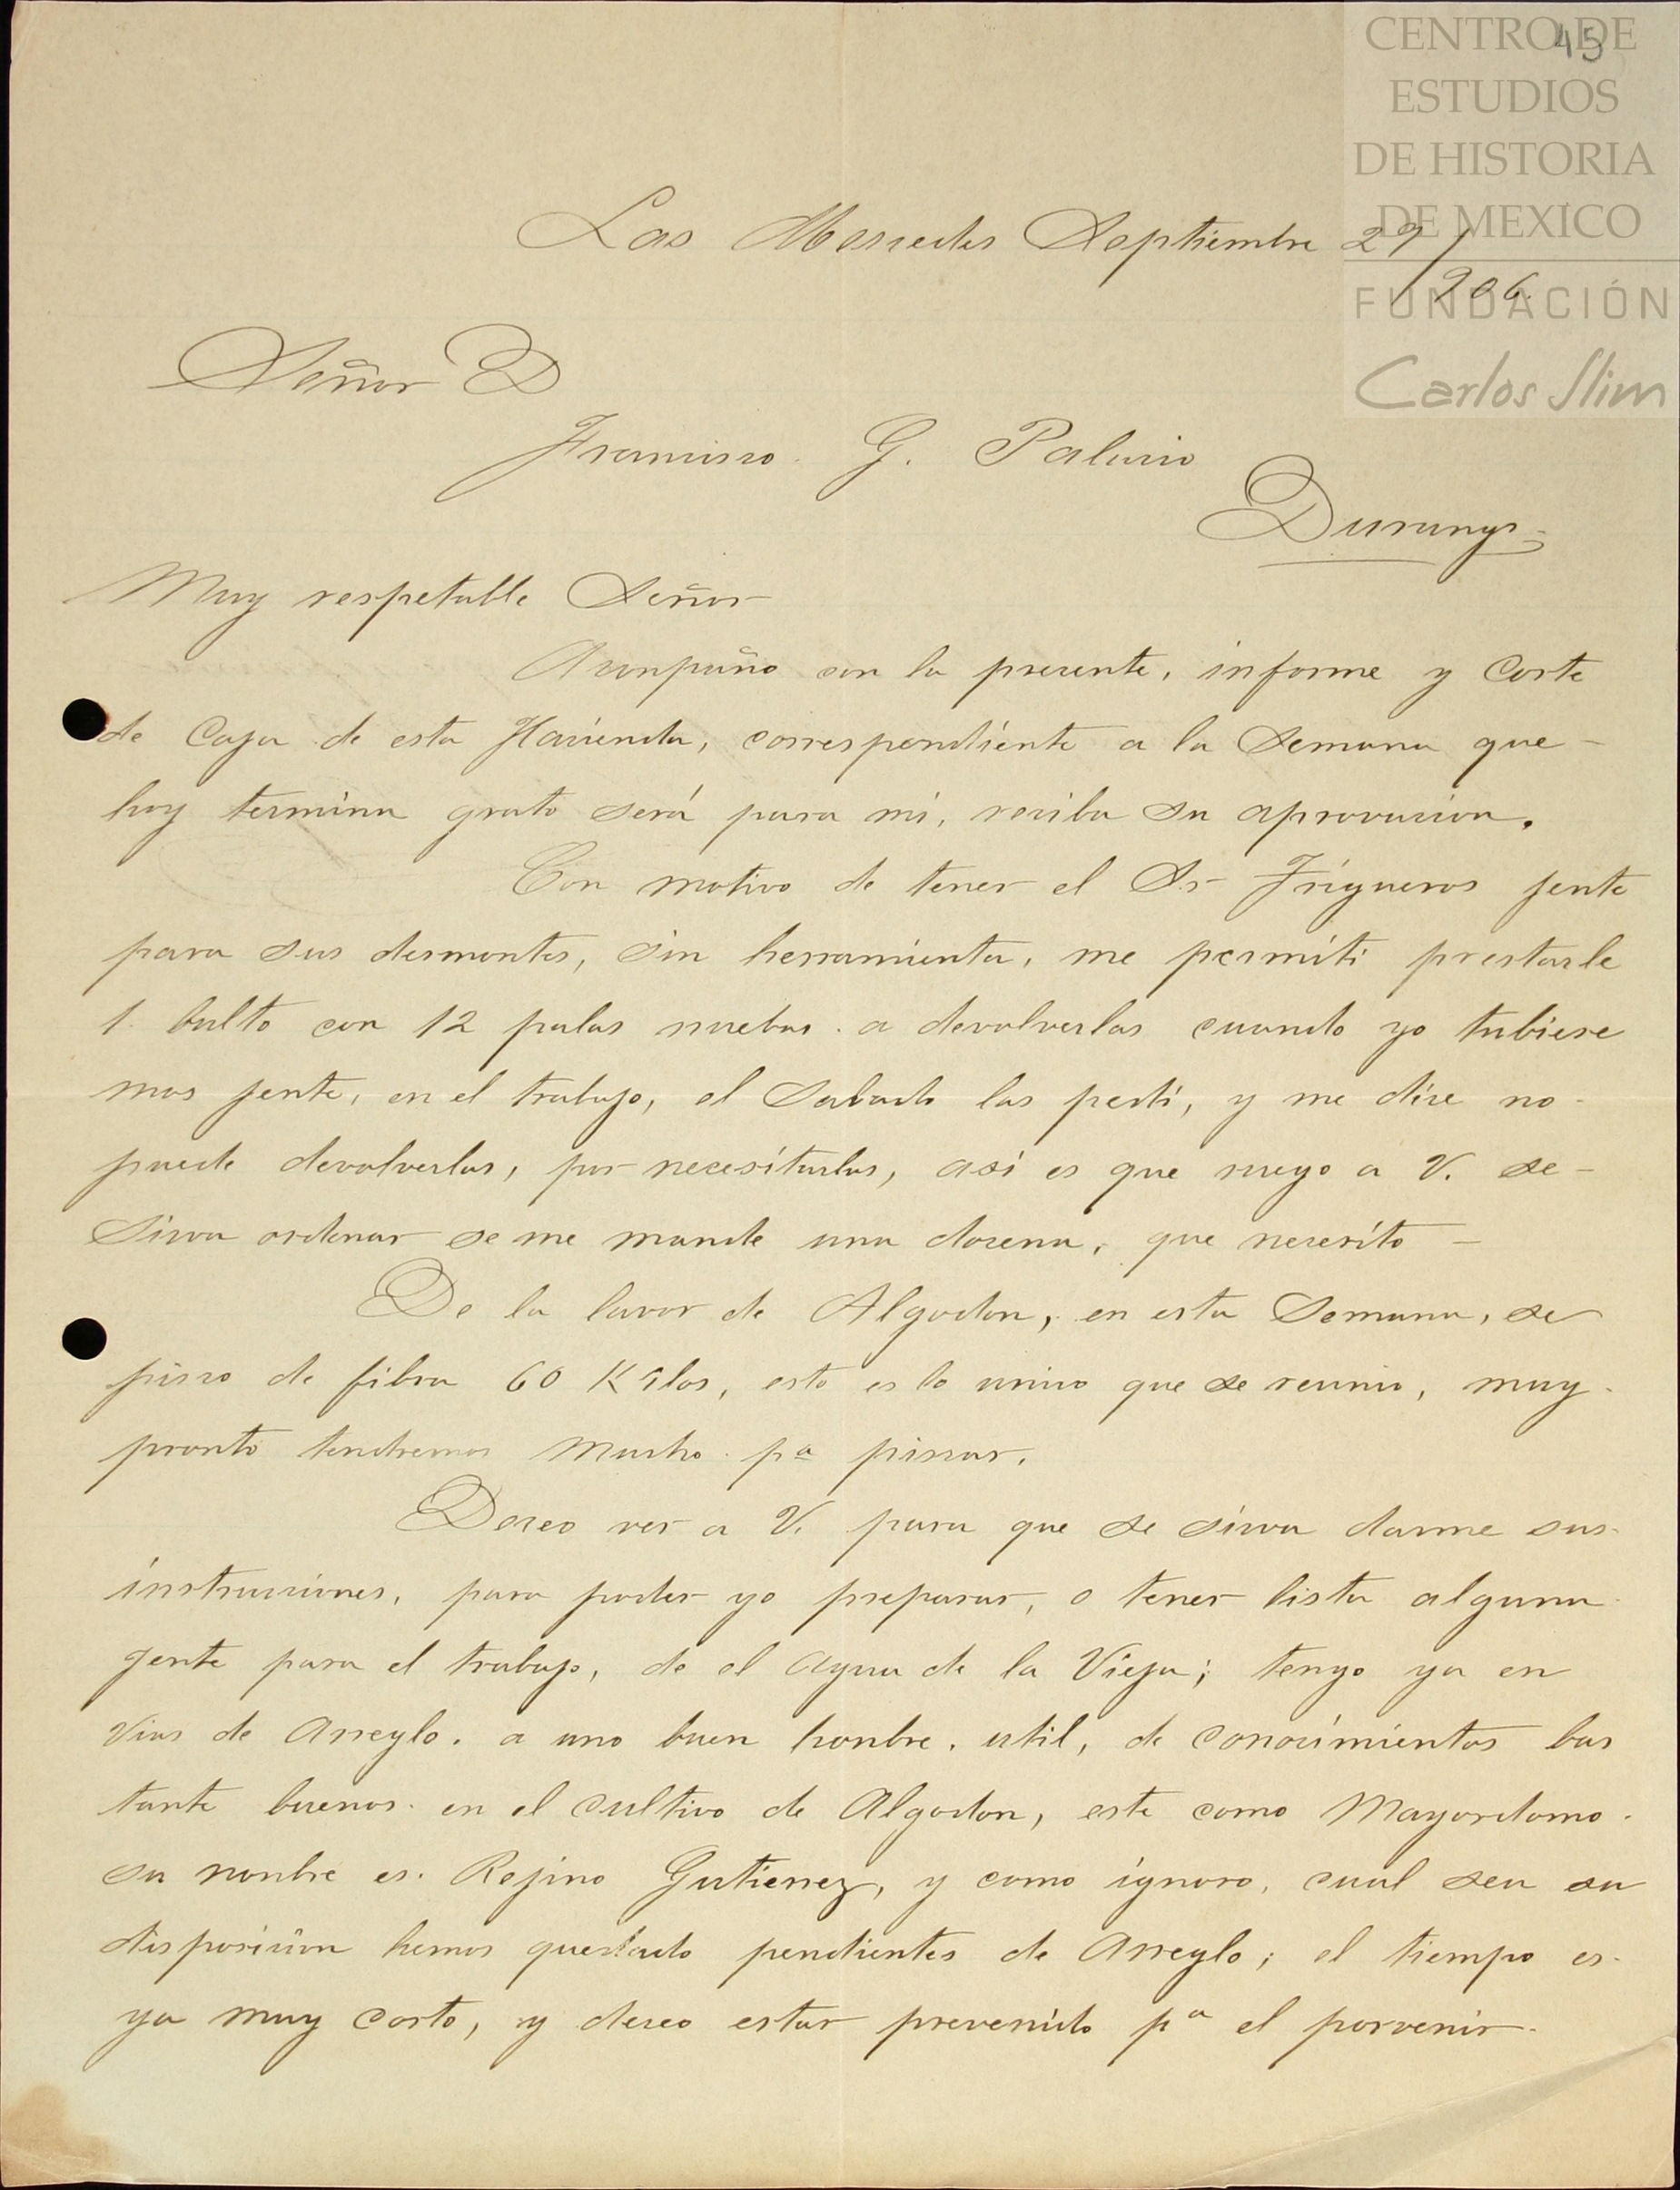 CENTRO DE
45
ESTUDIOS
DE HISTORIA
DE MEXICO
FUNDACIÓN
Carlos Slim
Las Mercedes Septiembre 29/
906.
Señor D
Francisco G. Palacio
Durango
Muy respetable Señor
Aconpaño con la precente, informe y Corte
de Caja de esta Hacienda, correspondiente a la Semana que
hoy termina grato será para mi, reciba su aprovacion.
Con motivo de tener el Sr Trigueros jente
para sus desmontes, sin herramienta, me permiti prestarle
1. bulto con 12 palas nuebas. a devolverlas cuando yo tubiese
mas jente, en el trabajo, el Sabado las pedi, y me dice no
puede devolverlas, por necesitarlas, asi es que ruego a V. se
sirva ordenar se me mande una docena, que necesito
De la lavor de Algodon, en esta Semana, se
pisco de fibra 60 Kilos, esto es lo unico que se reunio, muy
pronto tendremos mucho pª piscar.
Deseo ver a V. para que se sirva darme sus
instrucciones, para poder yo preparar, o tener lista alguna
gente para el trabajo, de el Agua de la Vieja; tengo ya en
vias de Arreglo. a uno buen honbre, util, de conocimientos bas
tante buenos. en el cultivo de Algodon, este como Mayordomo.
su nonbre es. Rejino Gutierrez, y como ignoro, cual sea su
disposicion hemos quedado pendientes de Arreglo; el tiempo es
ya muy corto, y deseo estar prevenido pª el porvenir.